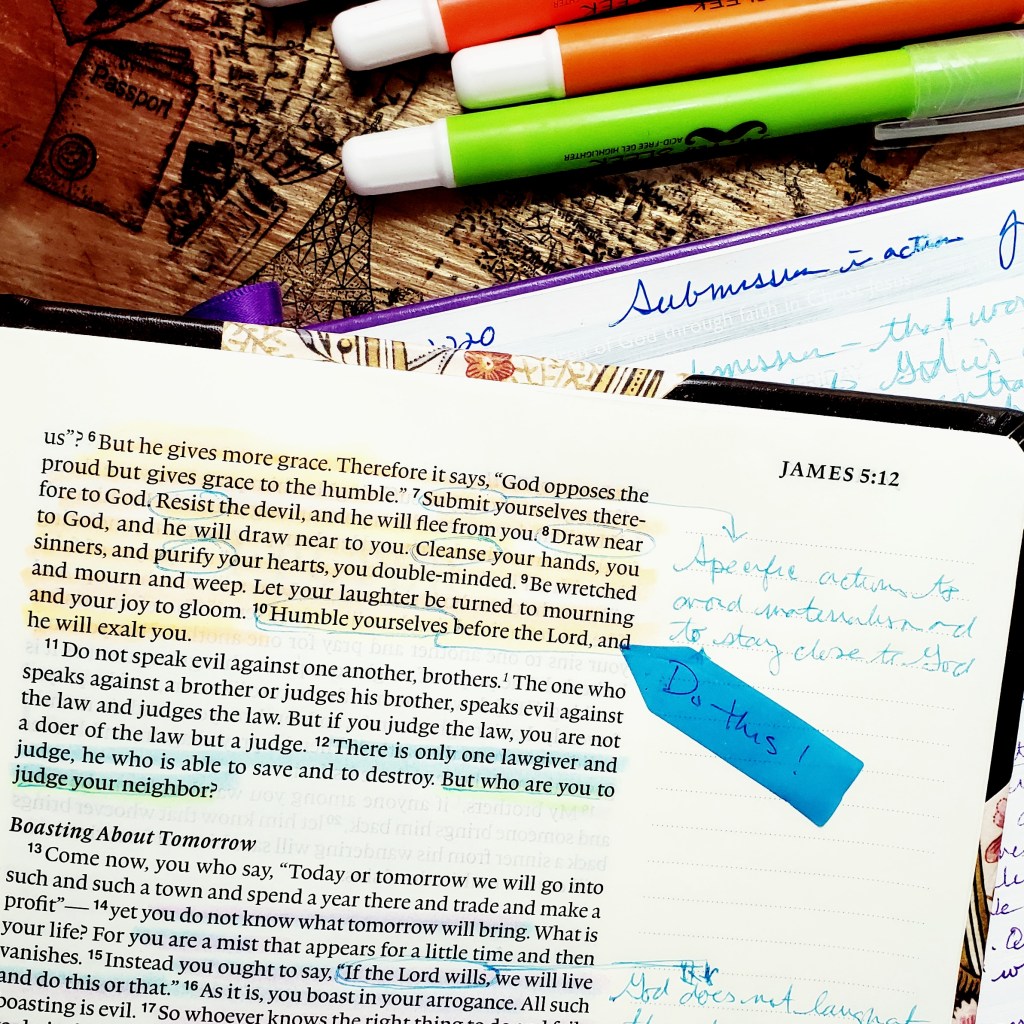 Passport
SLEEK
ACID-FREE GEL HIGHLIGHTER
Submission in action
God through faith in
submission - that
God is
us”? 6 But he gives more grace. Therefore it says, “God opposes the
proud but gives grace to the humble.” 7 Submit yourselves there-
fore to God. Resist the devil, and he will flee from you. 8 Draw near
to God, and he will draw near to you. Cleanse your hands, you
sinners, and purify your hearts, you double-minded. 9 Be wretched
and mourn and weep. Let your laughter be turned to mourning
and your joy to gloom. 10 Humble yourselves before the Lord, and
he will exalt you.
11 Do not speak evil against one another, brothers.1 The one who
speaks against a brother or judges his brother, speaks evil against
the law and judges the law. But if you judge the law, you are not
a doer of the law but a judge. 12 There is only one lawgiver and
judge, he who is able to save and to destroy. But who are you to
judge your neighbor?
Boasting About Tomorrow
13 Come now, you who say, “Today or tomorrow we will go into
such and such a town and spend a year there and trade and make a
profit”— 14 yet you do not know what tomorrow will bring. What is
your life? For you are a mist that appears for a little time and then
vanishes. 15 Instead you ought to say, “If the Lord wills, we will live
and do this or that.” 16 As it is, you boast in your arrogance. All such
boasting is evil. 17 So whoever knows the right thing to do
JAMES 5:12
Specific actions to
avoid materialism and
to stay close to God
Do this!
God does not laugh at